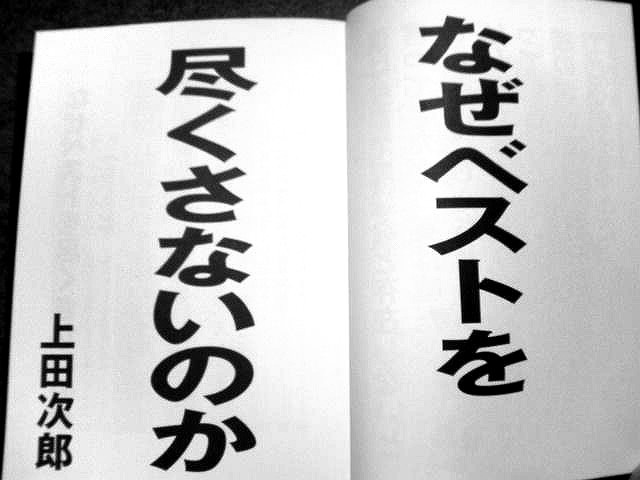 なぜベストを
尽くさないのか
上田次郎